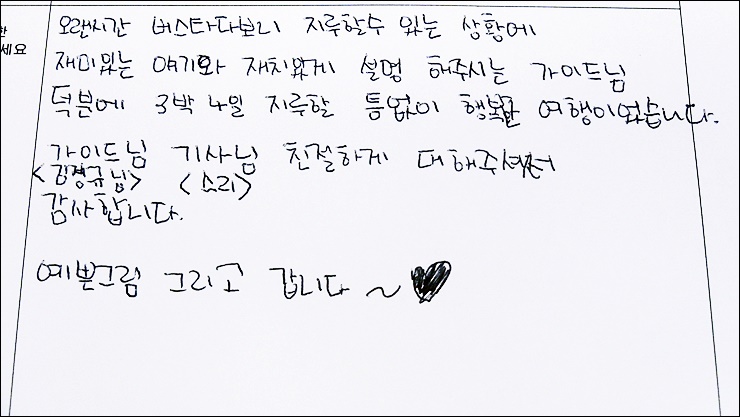 한
세요
오랜시간 버스타다보니 지루할수 있는 상황에
재미있는 얘기와 재치있게 설명 해주시는 가이드님
덕분에 3박 4일 지루할 틈없이 행복한 여행이었습니다.
가이드님 기사님 친절하게 대해주셔서
<김경규님> <쇼리>
감사합니다.
예쁜그림 그리고 갑니다 ~ ♥